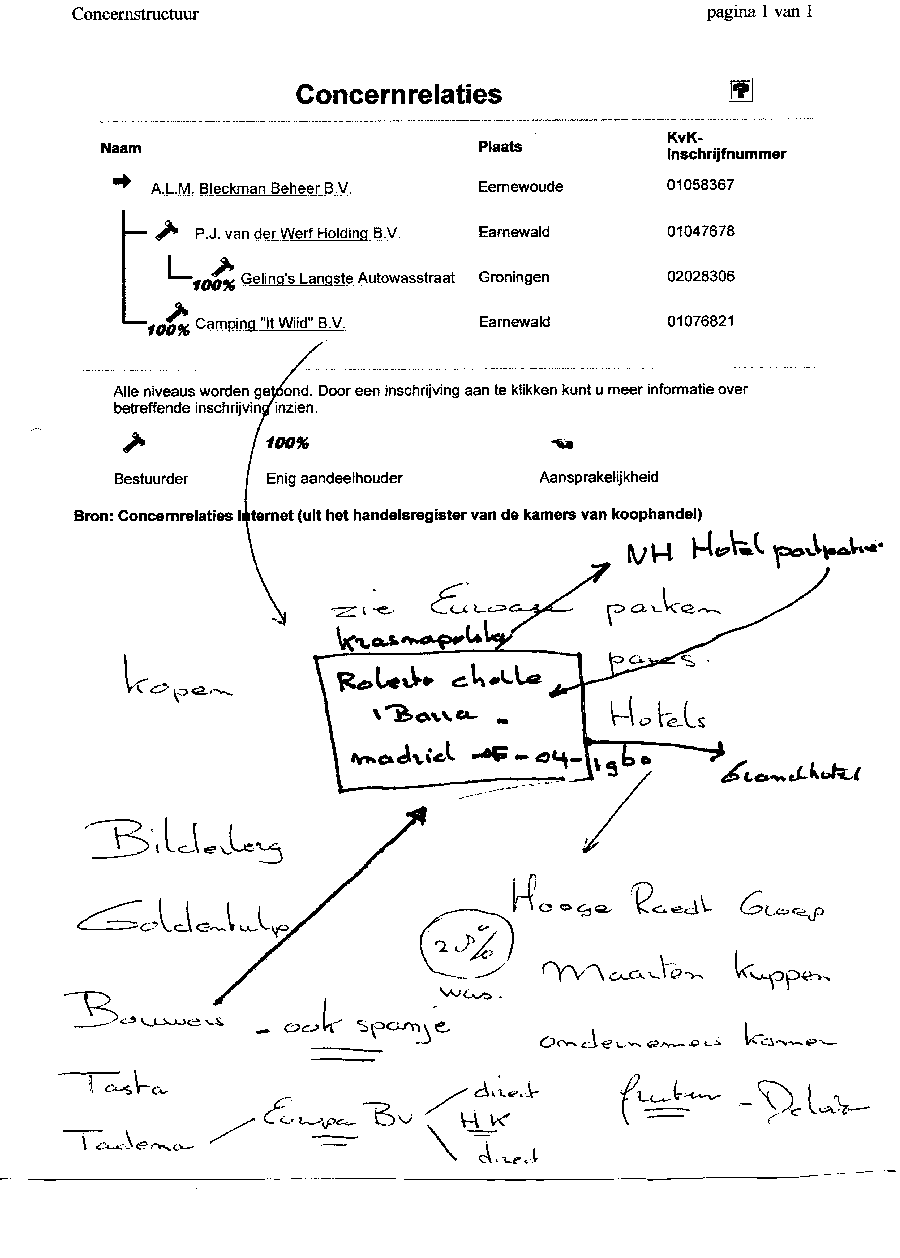 Concernstructuur pagina 1 van 1
Concernrelaties
Naam Plaats KvK-
inschrijfnummer
A.L.M. Bleckman Beheer B.V. Eernewoude 01058367
P.J. van der Werf Holding B.V. Earnewald 01047678
100% Geling's Langste Autowasstraat Groningen 02028306
100% Camping "It Wiid" B.V. Earnewald 01076821
Alle niveaus worden getoond. Door een inschrijving aan te klikken kunt u meer informatie over
betreffende inschrijving inzien.
100%
Bestuurder Enig aandeelhouder Aansprakelijkheid
Bron: Concernrelaties Internet (uit het handelsregister van de kamers van koophandel)
NH Hotel
zie parken
Krasnapolsky
kopen
Roberto
Hotels
madrid 04-1960
Grandhotel
Bilderberg
Hooge Raedt Groep
Goldentulp
25%
was.
Maarten Kuppen
Bouwers - ook spanje
ondernemers kamer
Tasta
direct
Europa BV HK
Tadema
direct